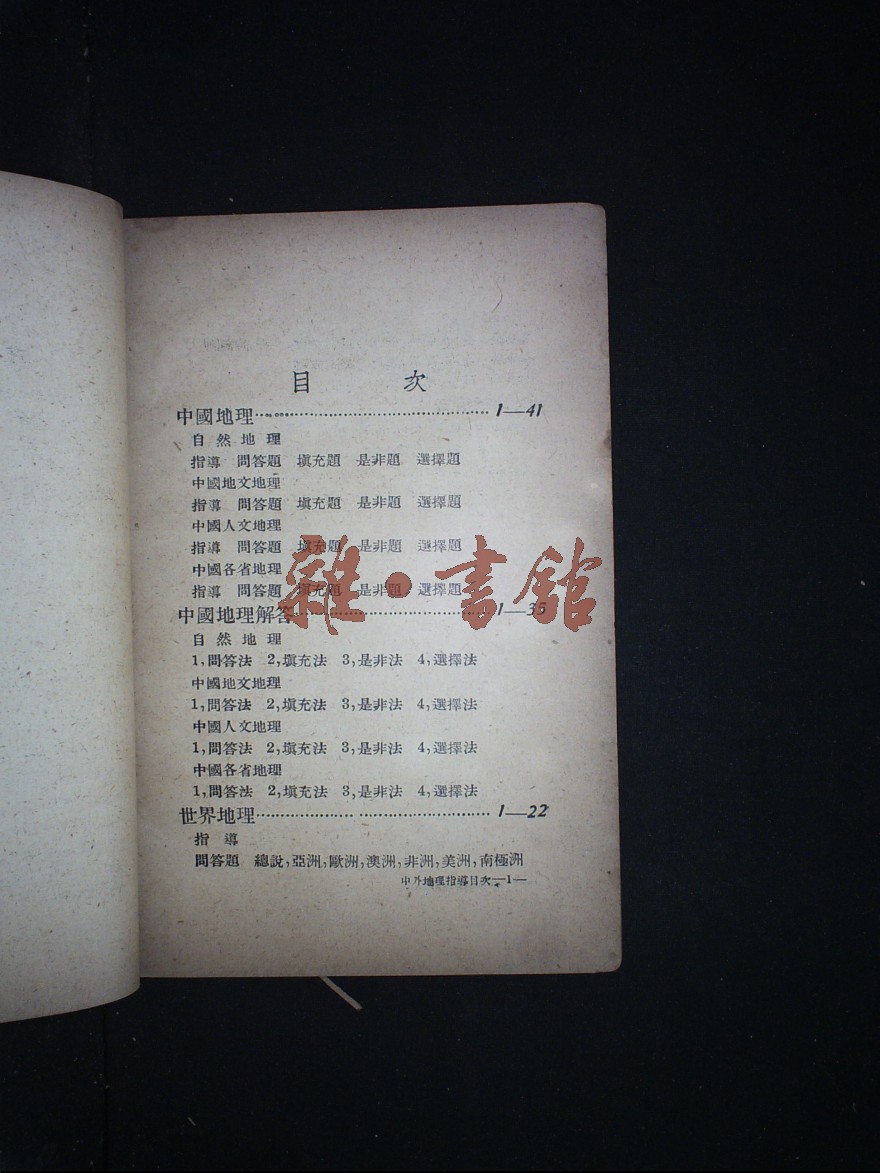 目 次
中國地理 1—41
自然地理
指導 問答題 填充題 是非題 選擇題
中國地文地理
指導 問答題 填充題 是非題 選擇題
中國人文地理
指導 問答題 填充題 是非題 選擇題
中國各省地理
指導 問答題 填充題 是非題 選擇題
中國地理解答 1—35
自然地理
1,問答法 2,填充法 3,是非法 4,選擇法
中國地文地理
1,問答法 2,填充法 3,是非法 4,選擇法
中國人文地理
1,問答法 2,填充法 3,是非法 4,選擇法
中國各省地理
1,問答法 2,填充法 3,是非法 4,選擇法
世界地理 1—22
指導
問答題 總說,亞洲,歐洲,澳洲,非洲,美洲,南極洲
中外地理指導目次—1—
雜·書館